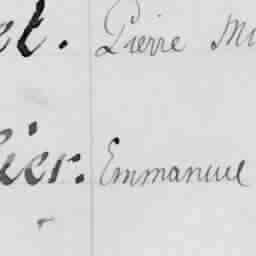 et. Pierre Mi
ier. Emmanuel